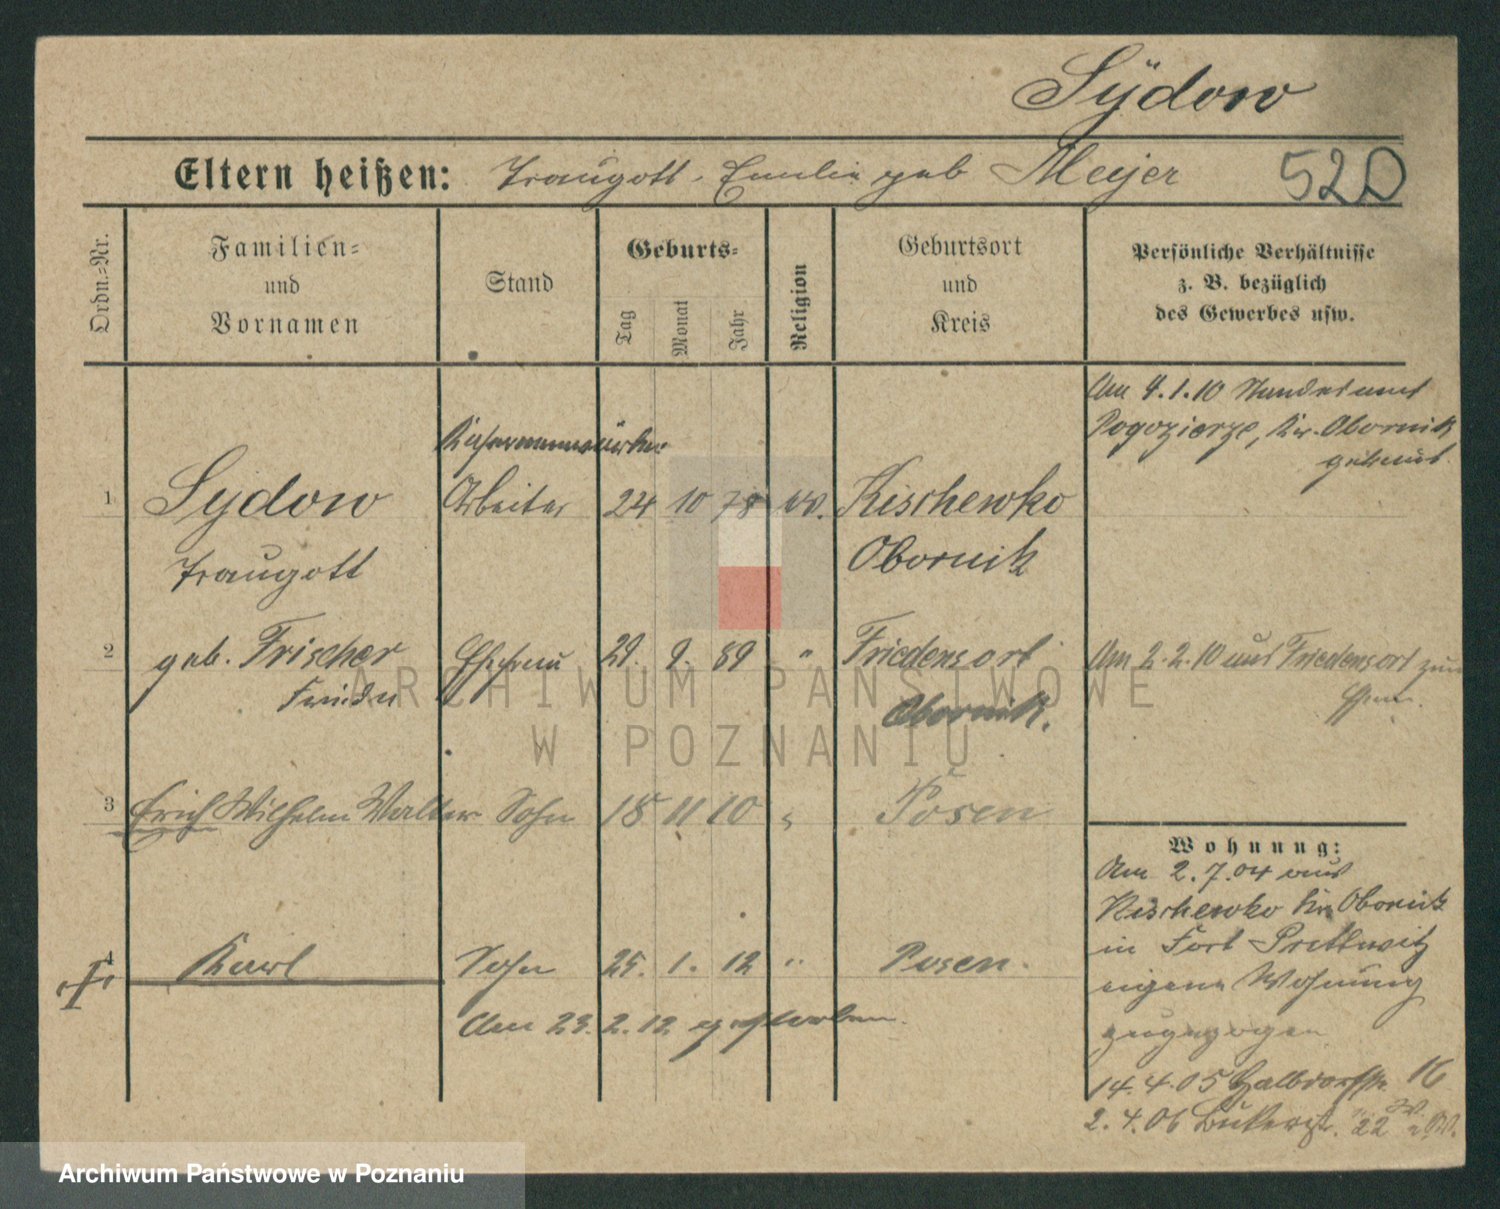 Sÿdow
Eltern heißen: Traugott. Emilie geb Meyer
520
Ordn.=Nr.
Familien=
und
Vornamen
Stand
Geburts=
Tag
Monat
Jahr
Religion
Geburtsort
und
Kreis
Persönliche Verhältnisse
z. B. bezüglich
des Gewerbes usw.
Am 4.1.10 Standesamt
Pogozierze, Kr. Obornik
geheirat.
1 Sydow Arbeiter 24 10 78 ev. Kischewko
Traugott Obornik
2 geb. Frischer Ehefrau 29. 9. 89 " Friedensort
Obornik.
Am 2.2.10 aus Friedensort zum
3 Erich Wilhelm Walter Sohn 18 11 10 " Posen
4 Karl Sohn 25. 1. 12 " Posen.
Am 23. 2. 12 gestorben.
Wohnung:
Am 2.7.04 aus
Kischewko Kr. Obornik
in Fort Prittwitz
eigene Wohnung
zugezogen
14.4.05 16
2.4.06 Bukerstr. 22
ARCHIWUM PAŃSTWOWE
W POZNANIU
Archiwum Państwowe w Poznaniu